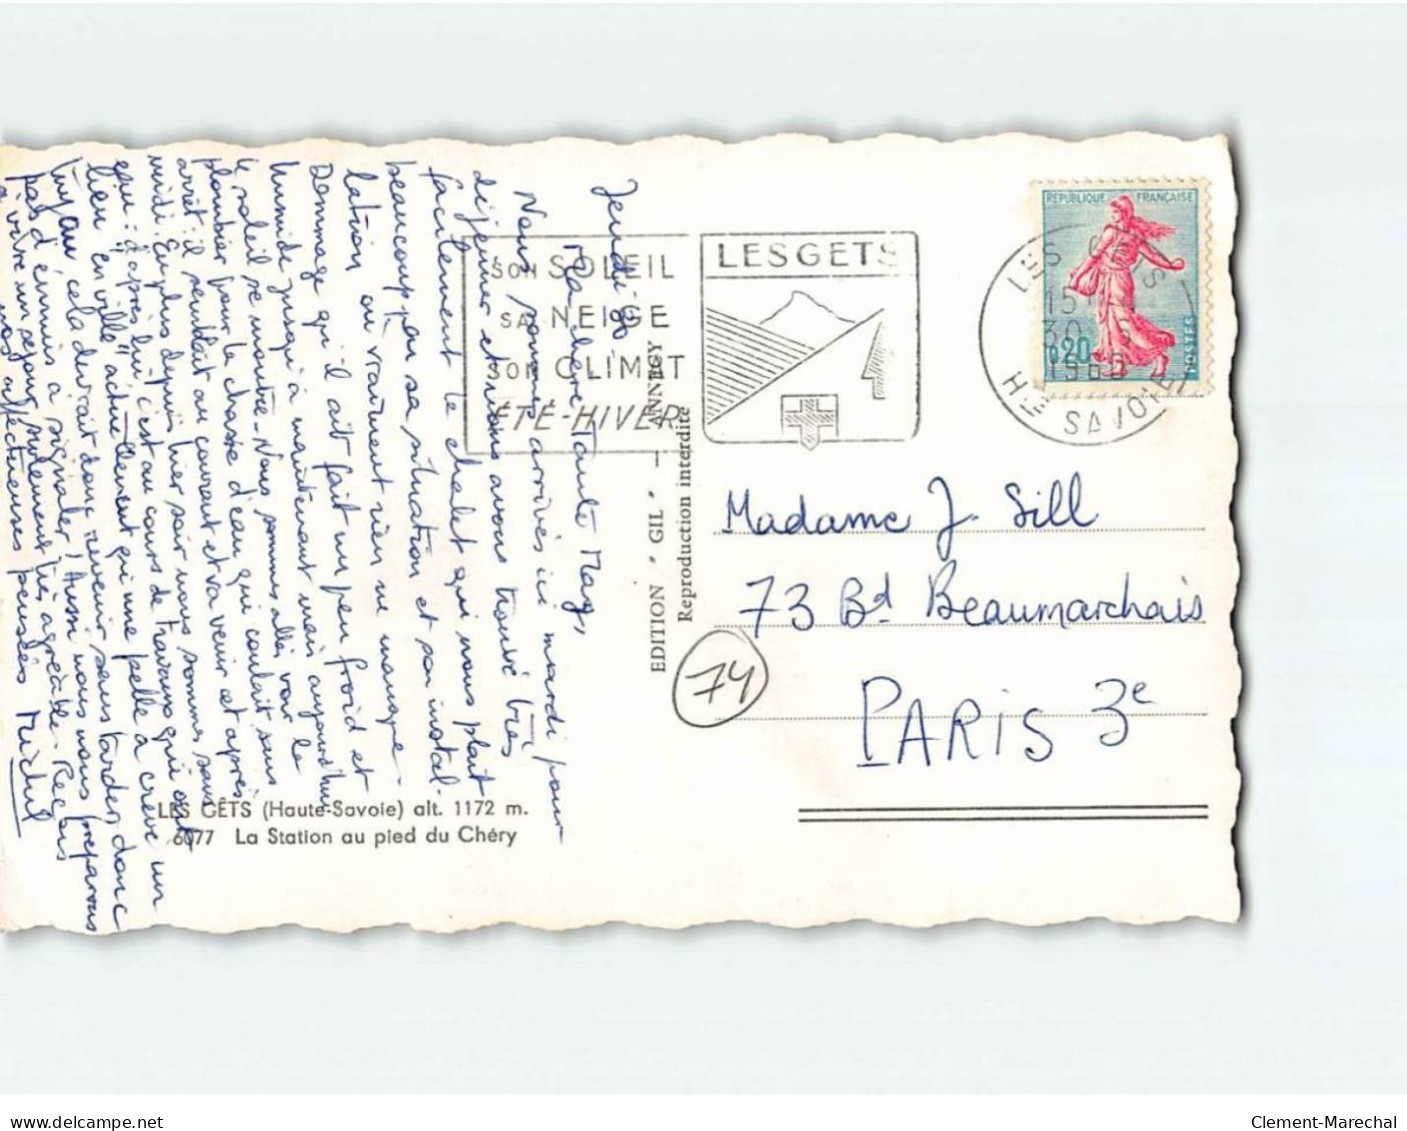 Jeudi 30
Ma chère Tante Mag,
Nous sommes arrivés ici mardi pour
déjeuner et nous avons trouvé très
facilement le chalet qui nous plait
beaucoup par sa situation et son instal-
lation où vraiment rien ne manque.
Dommage qu'il ait fait un peu froid et
humide jusqu'à maintenant mais aujourd'hui
le soleil se montre. Nous sommes allés voir le
plombier pour la chasse d'eau qui coulait sans
arrêt : il semblait au courant et va venir cet après
midi. En plus depuis hier soir nous sommes sans
eau : d'après lui c'est au cours de travaux qui ont
lieu "en ville" actuellement qu'une pelle a crevé un
tuyau cela devrait donc revenir sans tarder, donc
pas d'ennuis à signaler ! Aussi nous nous préparons
à vivre un séjour très agréable. Reçois
nos affectueuses pensées Michel
EDITION "GIL" - ANNECY
Reproduction interdite
LES GÊTS (Haute-Savoie) alt. 1172 m.
6077 La Station au pied du Chéry
SON SOLEIL
SA NEIGE
SON CLIMAT
ÉTÉ-HIVER
LES GETS
REPUBLIQUE FRANÇAISE
0,20
POSTES
LES GETS
15
30
HTE SAVOIE
Madame J. Sill
73 Bd Beaumarchais
PARIS 3e
74
www.delcampe.net
Clement-Marechal